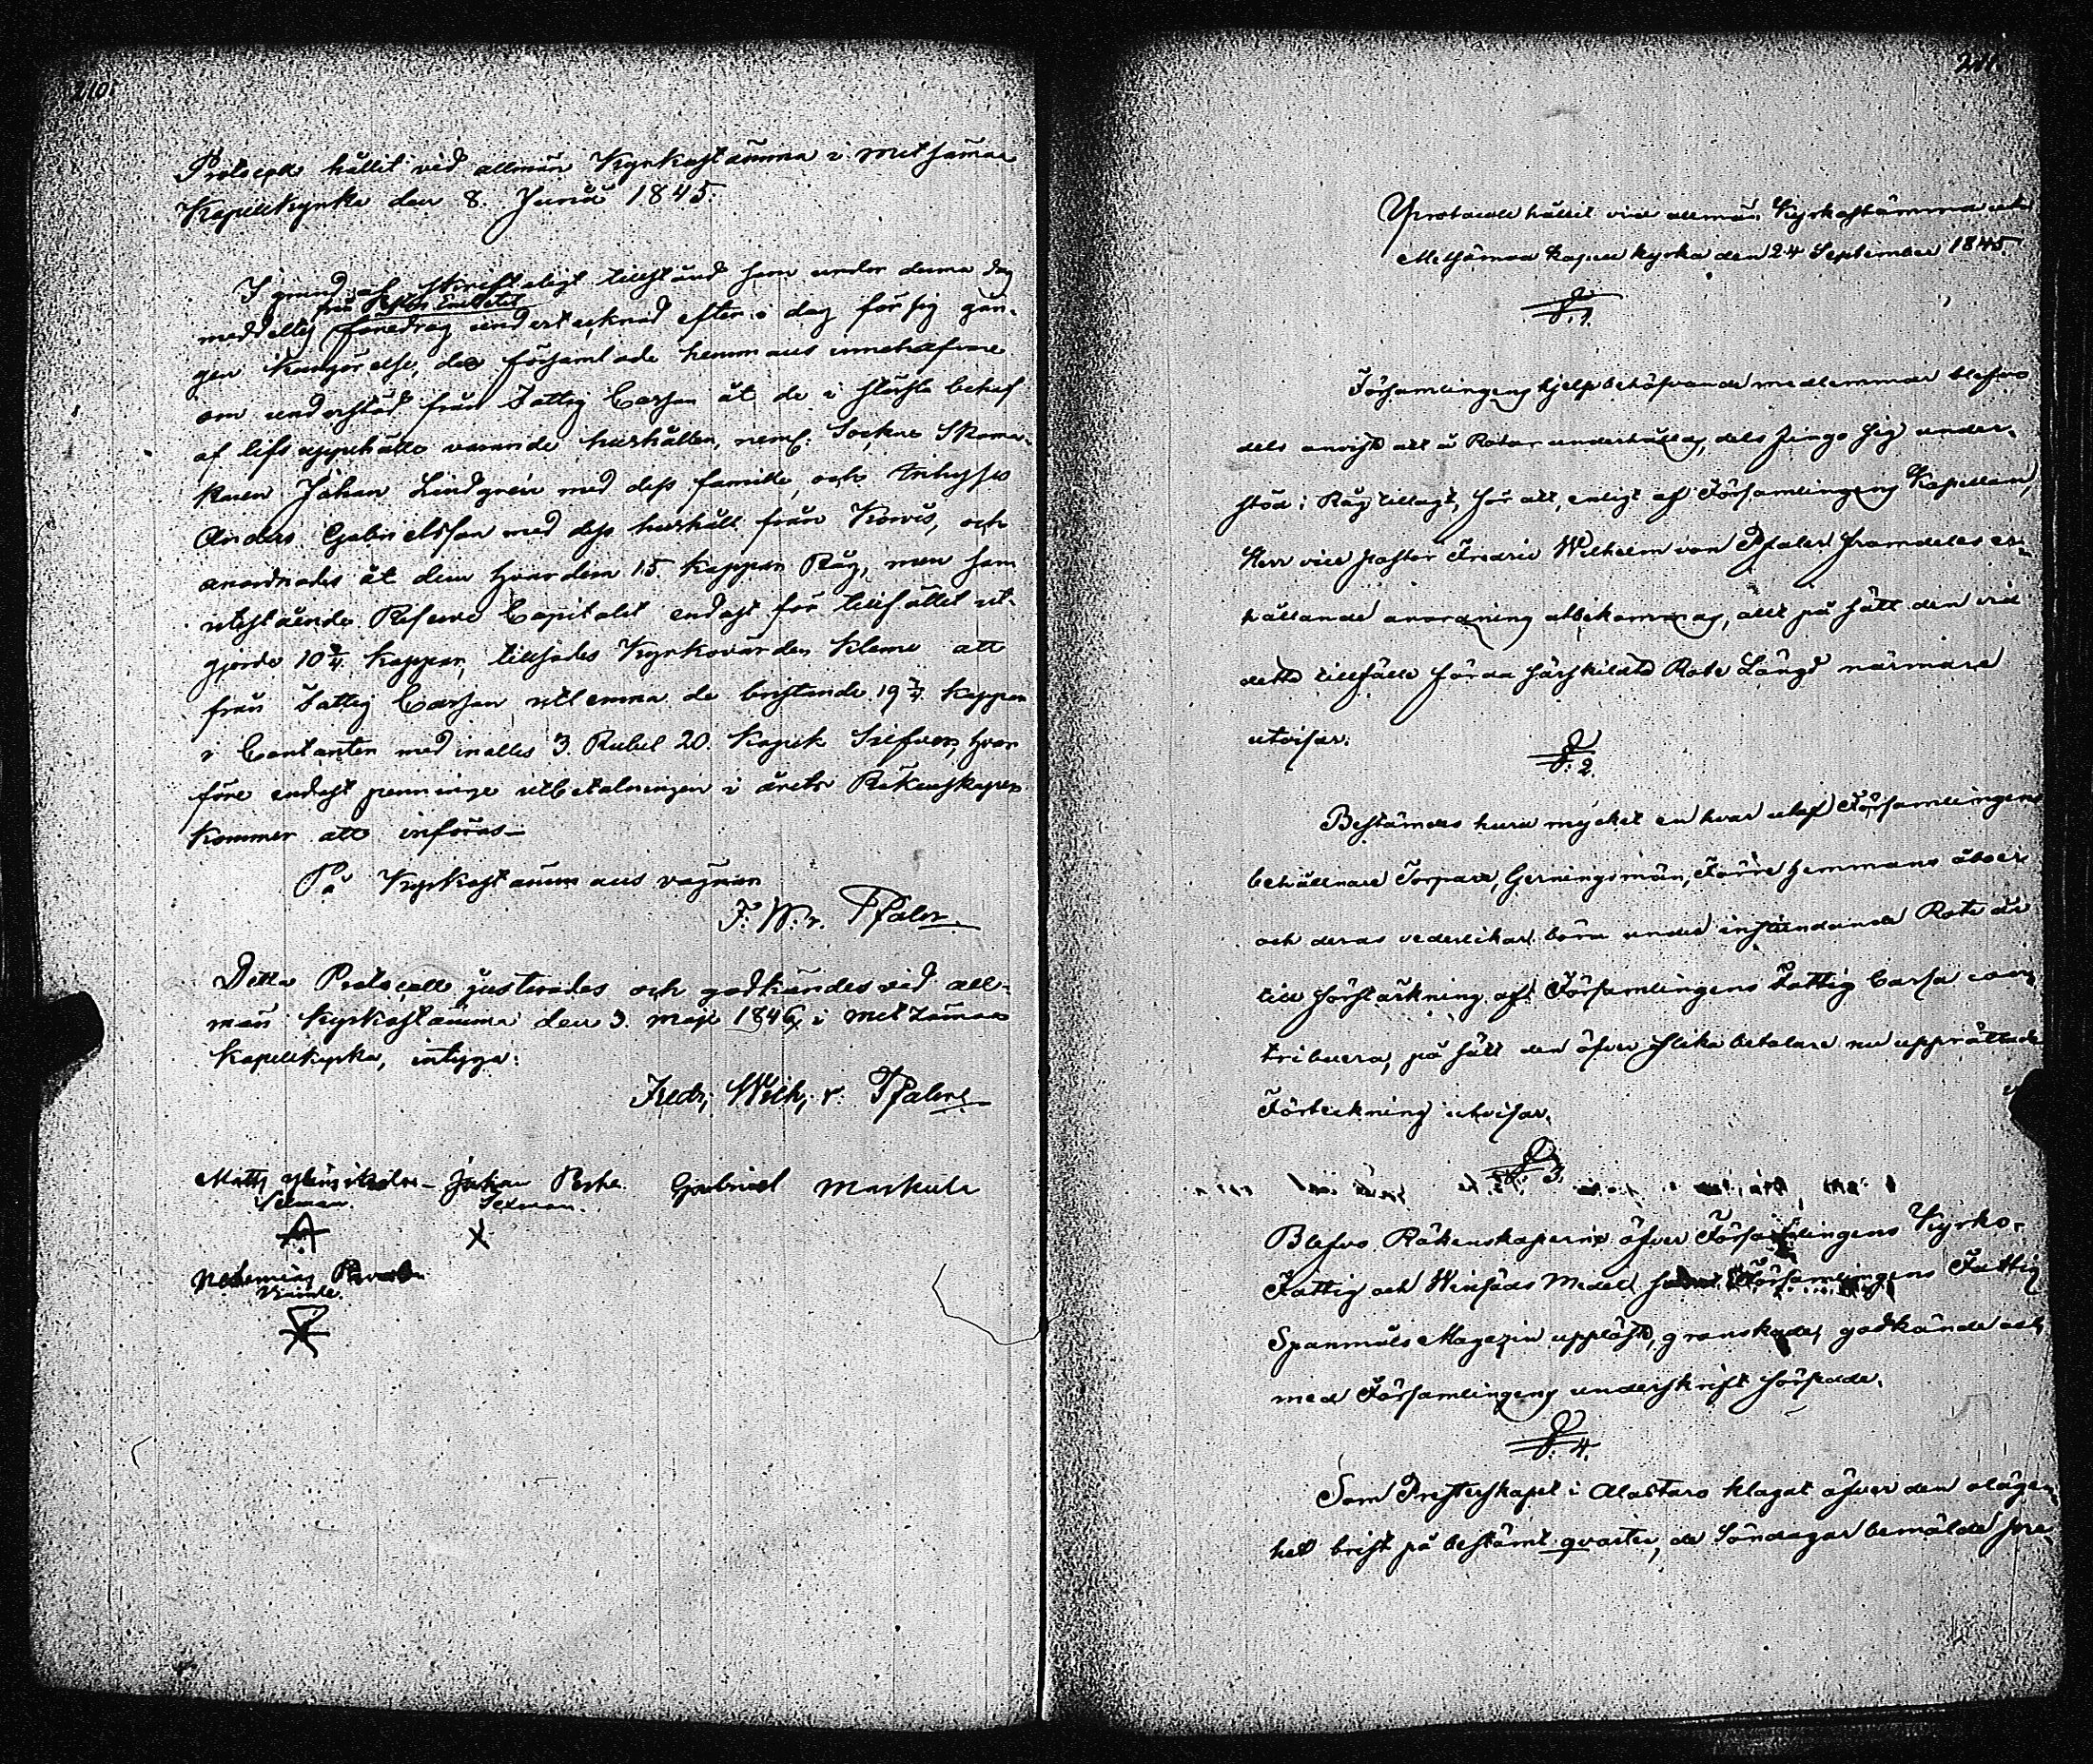 210.
Protocoll hållit vid allmän Kyrkostämma i Metsämaa
Kapellkyrka den 8. Junii 1845.
I grund af skrifteligt tillstånd som under denna dag
från Pastors Embetet
meddelts föredrog undertecknad efter i dag för sig gån-
gen kungörelse, de församlade hemmans innehafvare
om understöd från Fattig Cassan åt de i största behof
af lifs uppehälle varande hushållen, neml: Sockne Skoma-
karen Johan Lindgrén med dess famille, och Inhyses
Anders Gabrielsson med dess hushåll från Korvis, och
anordnades åt dem hvardera 15. kappar Råg, men som
utestående Reserve Capitalet endast för tillfället ut-
gjorde 10 3/4. kappar, tillsades Kyrkovärden Kleme att
från Fattig Cassan utlemna de bristande 19 1/4. kappar
i Contanter med inalles 3. Rubel 20. Kopek Silfver, hvar
före endast penninge utbetalningen i årets Räkenskaper
kommer att införas—
På Kyrkostämmans vägnar
F. W. v. Pfaler.
Detta Protocoll justerades och godkändes vid all-
män Kyrkostämma den 3. Maji 1846 i Metzämaa
Kapellkyrka, intyga:
Fredr; Wilh; v. Pfaler.
Matts
Johan Gabriel Markula
Sexman. Sexman.
211.
Protocoll hållit vid allmän Kyrkostämma uti
Metsämaa Kapell kyrka den 24 September 1845.
§. 1.
Församlingens hjelpbehöfvande medlemmar blefvo
dels anviste att å Rotar underhållas, dels fingo sig under-
stöd i Råg tillagt, för att, enligt af Församlingens Kapellan,
Herr vice pastor Fredric Wilhelm von Pfaler framdeles er-
hållande anordning utbekommas, allt på sätt den vid
detta tillfälle förda särskildta Rote Längd närmare
utvisar.
§. 2.
Bestämdes huru mycket en hvar utaf Församlingens
behållnare Torpare, Gerningsmän, Förre hemmans åboer
och deras vederlikar böra under instundande Rote år
till förstärkning af Församlingens Fattig Cassa con-
tribuera, på sätt den öfver slika betalare nu upprättade
Förteckning utvisar.
§. 3.
Blefvo Räkenskaperne öfver Församlingens Kyrko-
Fattig och Vinsäds Medel Församlingens Fattig
Spanmåls Magazin uppläste, granskade, godkände och
med Församlingens underskrift försedde.
§. 4.
Som Presterskapet i Alastaro klagat öfver den olägen-
het brist på bestämt qvarter, de Söndagar bemälde pre-